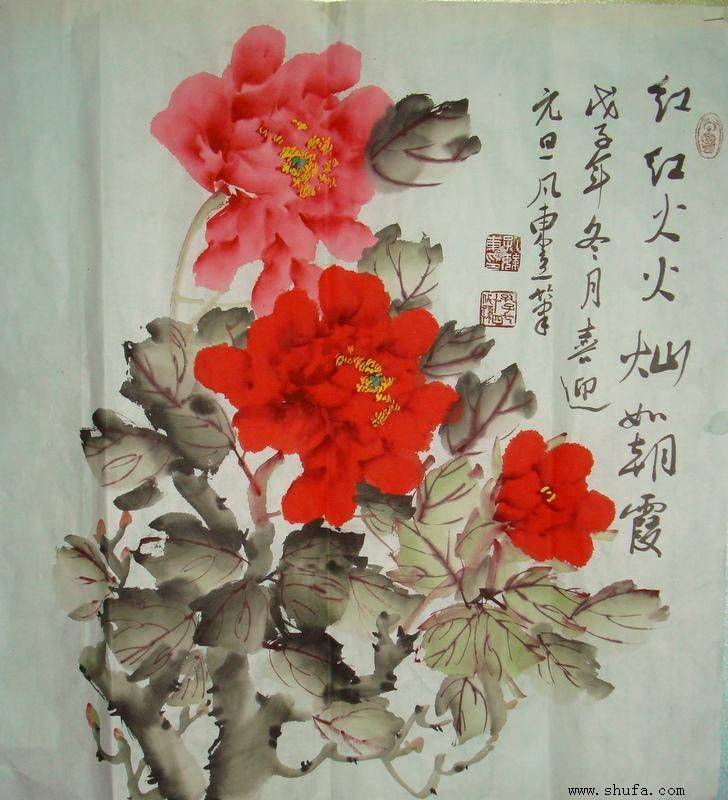 红红火火灿如朝霞
戊子年冬月喜迎
元旦风东之笔
www.shufa.com